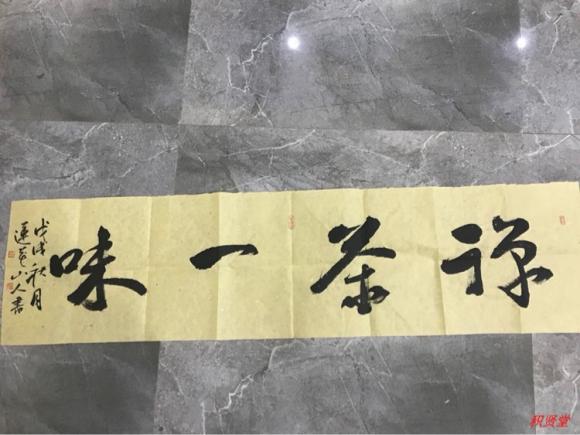 禅茶一味
戊戌秋月
山人書
积贤堂